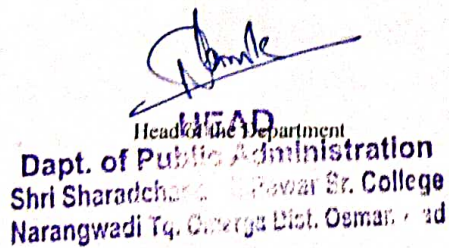 HEAD
Head of the Department
Dapt. of Public Administration
Shri Sharadcha Pawar Sr. College
Narangwadi Tq. Omerga Dist. Osman